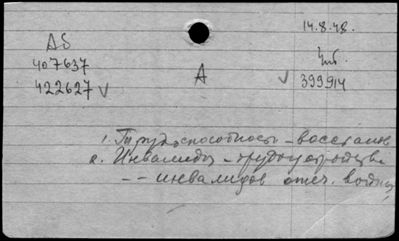 14.8.48.
AS
407637
422627 V
A
V 399914
1. Трудоспособность - восстанов
2. Инвалиды - трудоустройство
- - инвалидов отеч. войны